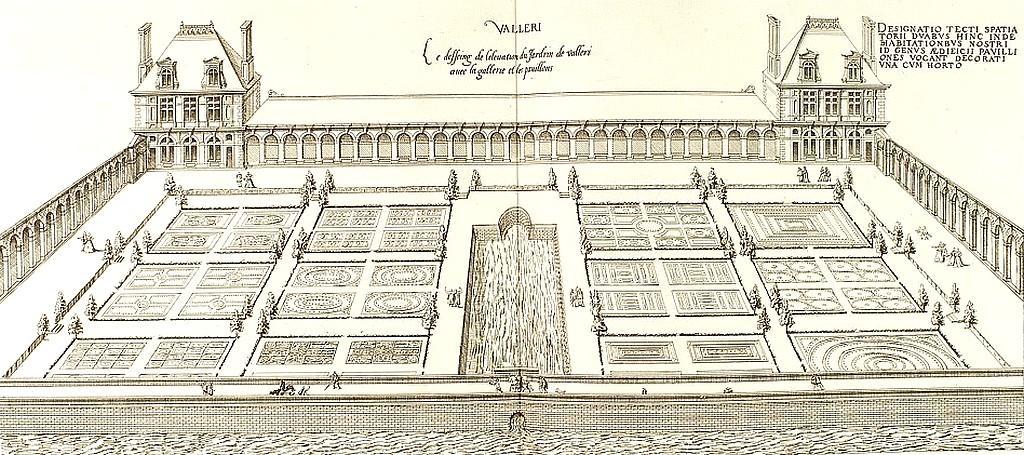 VALLERI
Le desseing de l'elevation du Jardrin de valleri
avec la gallerie et les pavillons
DESIGNATIO TECTI SPATIA
TORII DVABVS HINC INDE
HABITATIONBVS NOSTRI
ID GENVS ÆDIFICII PAVILLI
ONES VOCANT DECORATI
VNA CVM HORTO